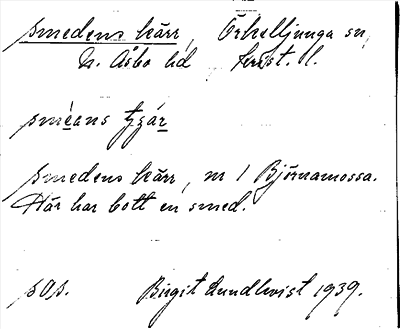 smedens kärr, Örkelljunga sn,
N. Åsbo hd Krist. l.
smedens kärr, nr 1 Björnamossa.
Här har bott en smed.
Birgit Lundkvist 1939.